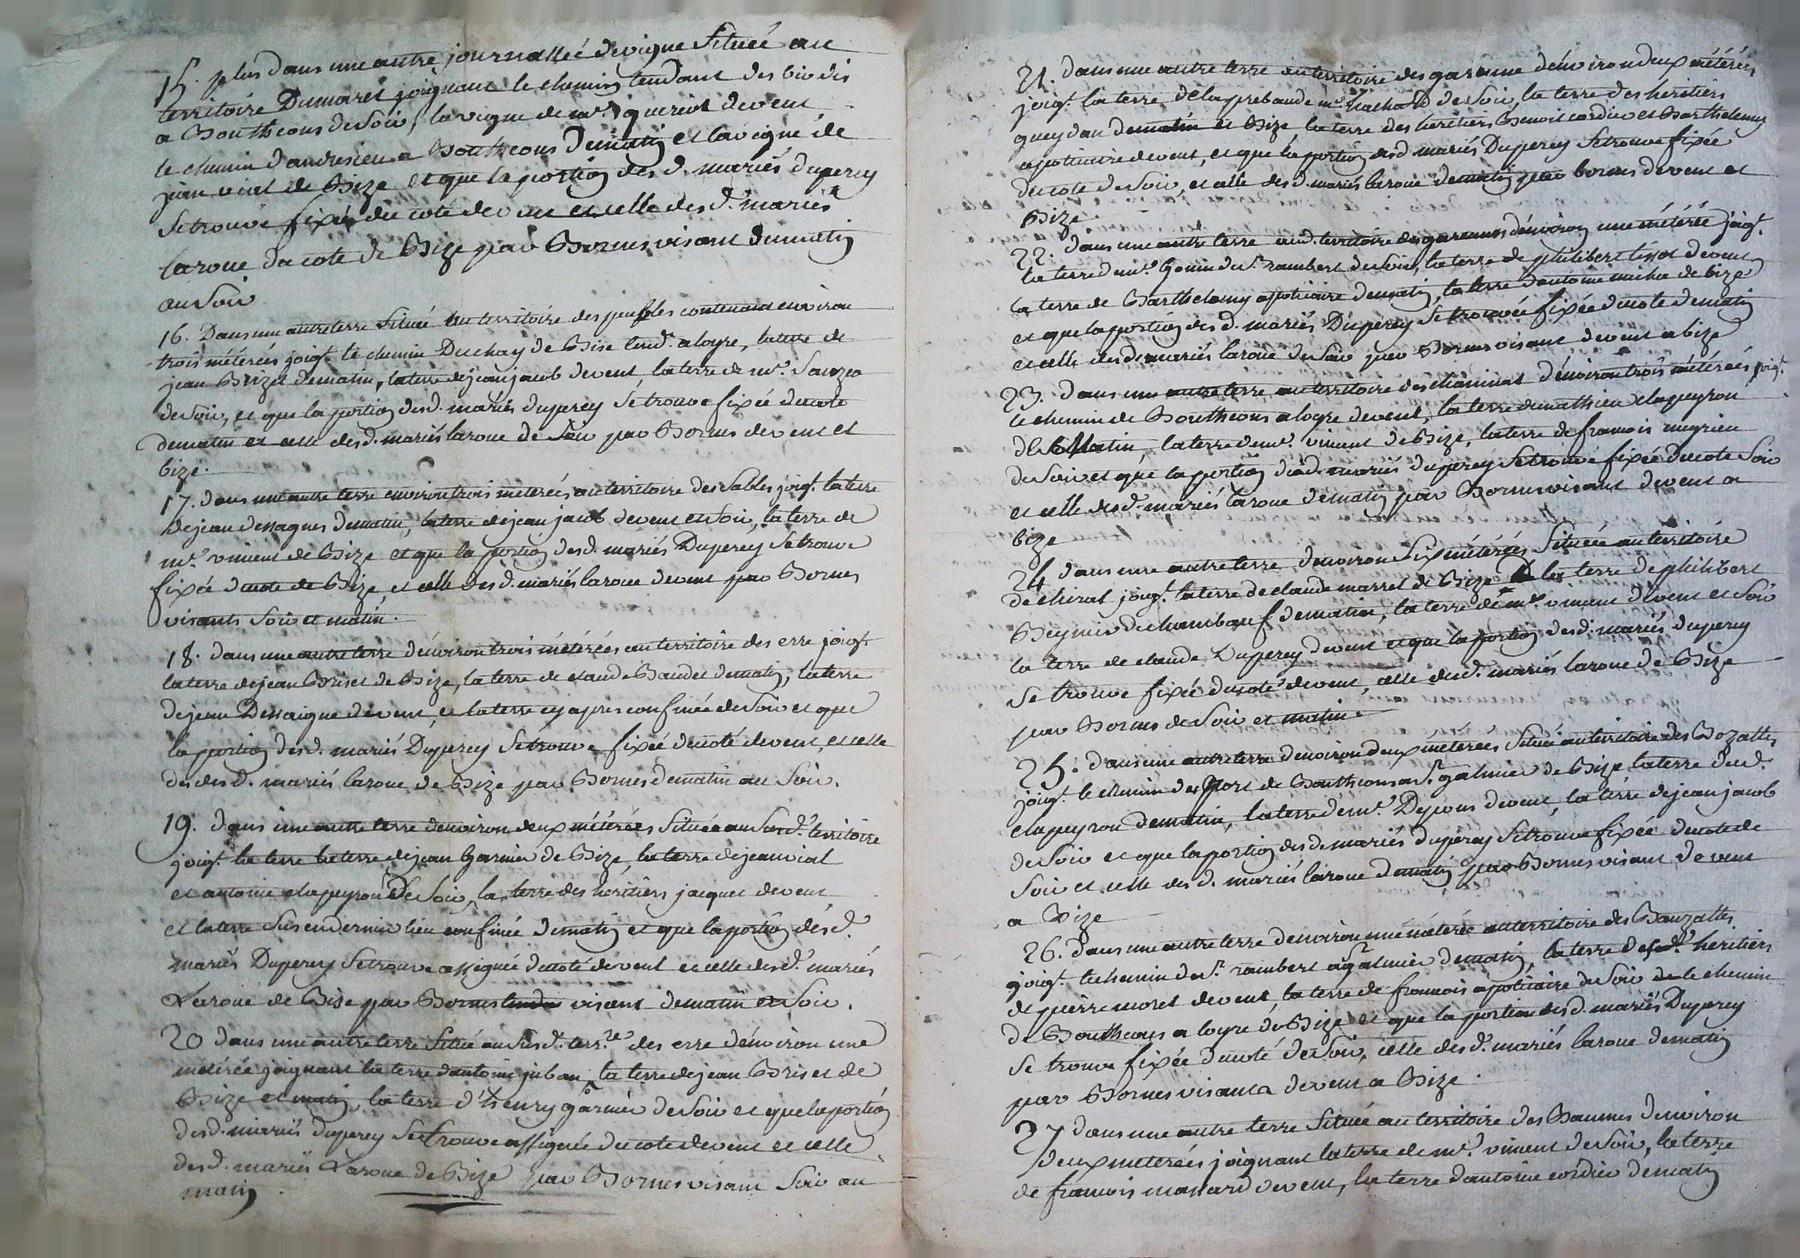 15. plus dans une autre journallée de vigne Située au
territoire Dumaret joignant le chemin tendant des
a Bouthcons de Soir, la vigne de mr. querint devent
le chemin d'andresieu a Bouthcons Dematin et la vigne de
jean vial de Bize et que la portion des d. mariés duperey
Se trouve fixée du coté devent et celle des d. mariés
laroue du coté de Bize par Bornes visant dematin
au Soir
16. Dans une autre terre Située au territoire des peufles contenant environ
trois métérées joigt. le chemin Duchay de Bise tend. a loyre, la terre de
jean Brizet dematin, la terre de jean jacob devent, la terre de mr. Sauzea
de Soir, et que la portion des d. mariés duperey Se trouve fixée du coté
dematin et celle des d. mariés laroue de Soir par Bornes devent et
bize.
17. dans une autre terre environ trois meterées au territoire des Sables joigt. la terre
de jean dessagnes dematin, la terre de jean jacob devent et Soir, la terre de
mr. vincent de Bize et que la portion des d. mariés Duperey Se trouve
fixée du coté de Bize, et celle des d. mariés laroue devent par Bornes
visants Soir et matin.
18. dans une autre terre d'environ trois métérées au territoire des erre joigt.
la terre de jean Briset de Bize, la terre de claude Baudet dematin, la terre
de jean Dessaigne devent, et la terre cy apres confinée de Soir et que
la portion des d. mariés Duperey Se trouve fixée du coté devent, et celle
de des d. mariés laroue, de Bize par Bornes dematin au Soir.
19. dans une autre terre d'environ deux métérées Située au Susd. territoire
joigt. la terre la terre de jean Garnier de Bize, la terre de jean vial
et antoine clapeyron De Soir, la terre des heritiers jacquet devent
et la terre Sus en dernier lieu confinée dematin et que la portion des d.
mariés Duperey Se trouve assignée du coté devent et celle des d. mariés
Laroue de Bise par Bornes visant dematin au Soir.
20 dans une autre terre Situé au Susd. terre. des erre d'environ une
métérée joignant la terre d'antoine juban, la terre de jean Briset de
Bize et matin, la terre d'henry garnier de Soir et que la portion
des d. mariés duperey Se trouve assignée du coté devent et celle
des d. mariés Laroue de Bize par Bornes visant Soir au
matin.
21. dans une autre terre au territoire des garenne d'environ deux métérées
joigt. la terre de la prebande mr. de Soir, la terre des heritiers
queydan dematin et Bize, la terre des heritiers Benoit cordier et Barthelemy
apoticaire devent, et que la portion des d. mariés Duperey Se trouve fixée
du coté de Soir, et celle des d. mariés laroue dematin par bornes devent et
Bize.
22. dans une autre terre aud. territoire des garennes d'environ une métérée joigt.
la terre d mr. Gonin du Sr. rambert de Soir, la terre de philibert devent
la terre de Barthelemy apoticaire dematin, la terre d'antoine de bize
et que la portion des d. mariés Duperey Se trouve fixée du coté dematin
et celle des d. mariés laroue de Soir par Bornes visant devent a bize
23. dans une autre terre au territoire des cheminat d'environ trois métérées joigt.
le chemin de Bouthcons a loyre devent, la terre de mathieu clapeyron
de Matin, la terre de mr. vincent de Bize, la terre de francois
de Soir et que la portion des d. mariés duperey Se trouve fixée du coté Soir
et celle des d. mariés laroue dematin par Bornes visant devent a
bize
24. dans une autre terre d'environ Six métérées Située au territoire
de chirat joigt. la terre de claude marret de Bize la terre de philibert
Beynier de chambœuf dematin, la terre de mr. vincent devent et Soir
la terre de claude Duperey devent et que la portion des d. mariés duperey
Se trouve fixée du coté devent, celle des d. mariés laroue de Bize
par Bornes de Soir et matin.
25. dans une autre terre d'environ deux meterées Située au territoire des Bozattes
joigt. le chemin des port de Bouthcons a St. galmier de Bize, la terre de d.
clapeyron dematin, la terre de mr. devent, la terre de jean jacob
de Soir et que la portion des d. mariés duperey Se trouve fixée du coté de
Soir et celle des d. mariés laroue dematin par Bornes visant devent
a Bize
26. dans une autre terre d'environ une métérée au territoire des Bauzattes
joigt. le chemin de St. rambert a galmier dematin, la terre des d. heritiers
de pierre moret devent, la terre de francois apoticaire de Soir le chemin
de Bouthcons a loyre de Bize et que la portion des d. mariés Duperey
Se trouve fixée du coté de Soir, celle des d. mariés laroue dematin
par Bornes visants devent a Bize.
27 dans une autre terre Située au territoire des Baumes d'environ
deux meterées joignant la terre de mr. vincent de Soir, la terre
de francois massard devent, la terre d'antoine cordier dematin